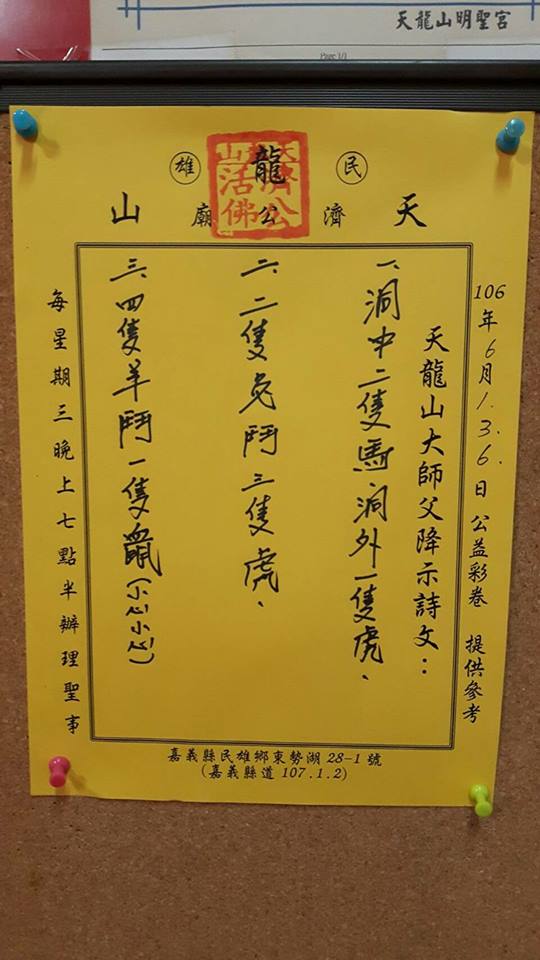 天龍山明聖宮
Page 1/1
民 龍 雄
天濟公廟山
天龍山濟公活佛
106年6月1.3.6日 公益彩卷 提供參考
天龍山大師父降示詩文:
一、洞中二隻馬、洞外一隻虎、
二、二隻兔鬥三隻虎、
三、四隻羊鬥一隻鼠(小心小心)
每星期三晚上七點半辦理聖事
嘉義縣民雄鄉東勢湖28-1號
(嘉義縣道 107.1.2)